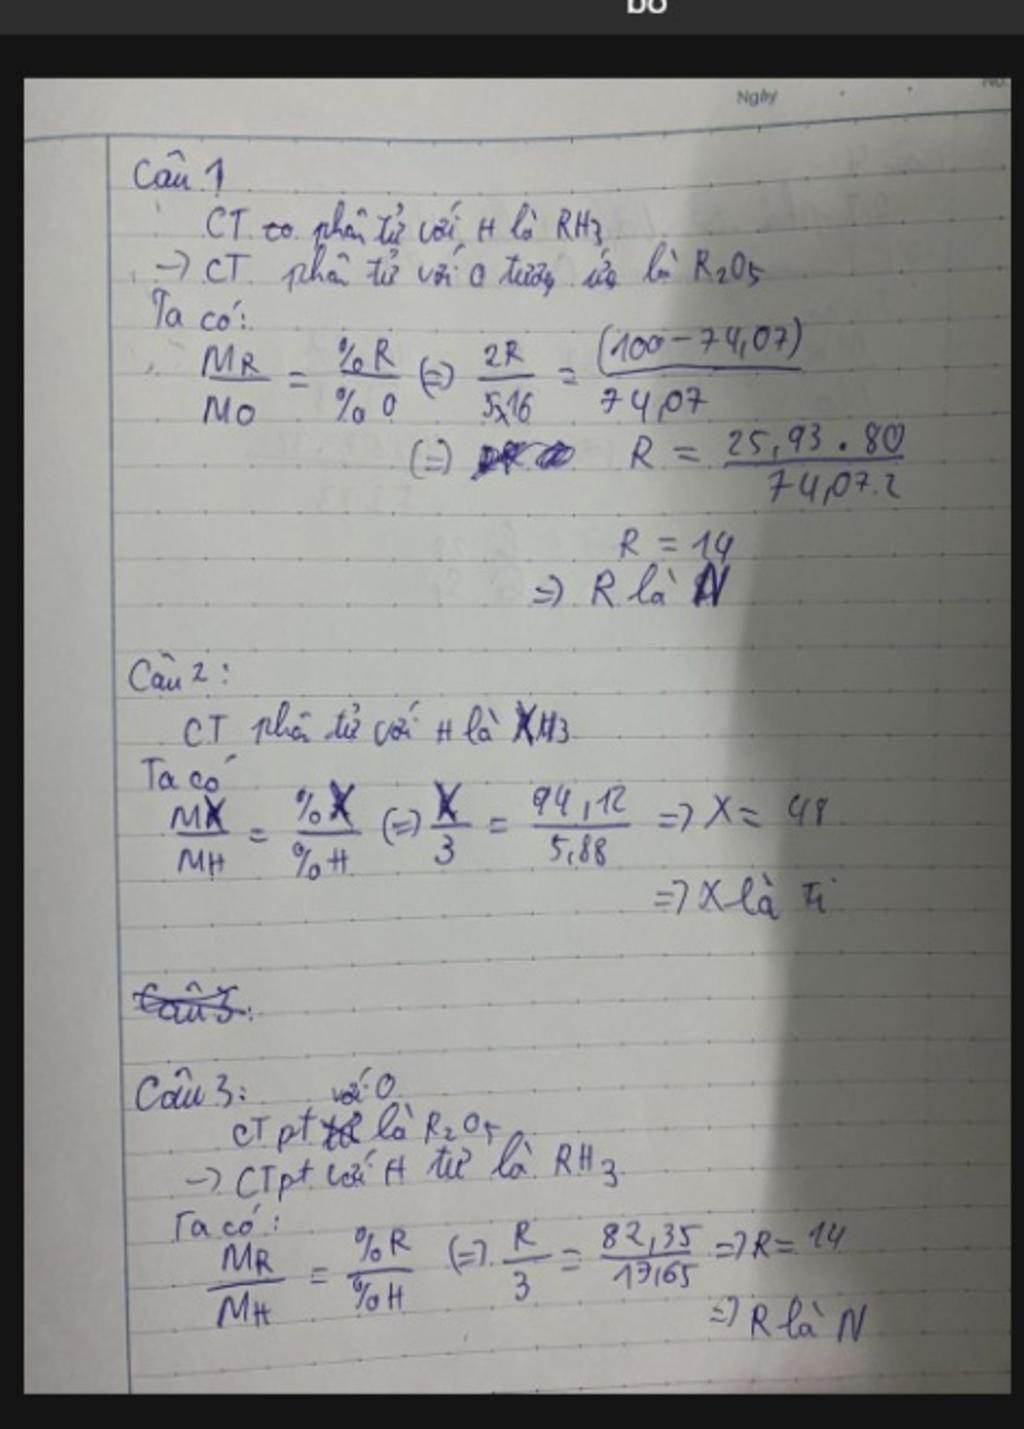 bo
Ngày
No.
Câu 1
CT phân tử với H là RH3
-> CT phân tử với O tương ứng là R2O5
Ta có:
MR/MO = %R/%O (=) 2R/5x16 = (100-74,07)/74,07
(=) R = 25,93.80/74,07.2
R = 14
=> R là N
Câu 2:
CT phân tử với H là XH3
Ta có
MX/MH = %X/%H (=) X/3 = 94,12/5,88 => X = 48
=> X là Ti
Câu 3:
với O
CTpt là R2O5
-> CTpt với H từ là RH3
Ta có:
MR/MH = %R/%H (=) R/3 = 82,35/17,65 => R = 14
=> R là N